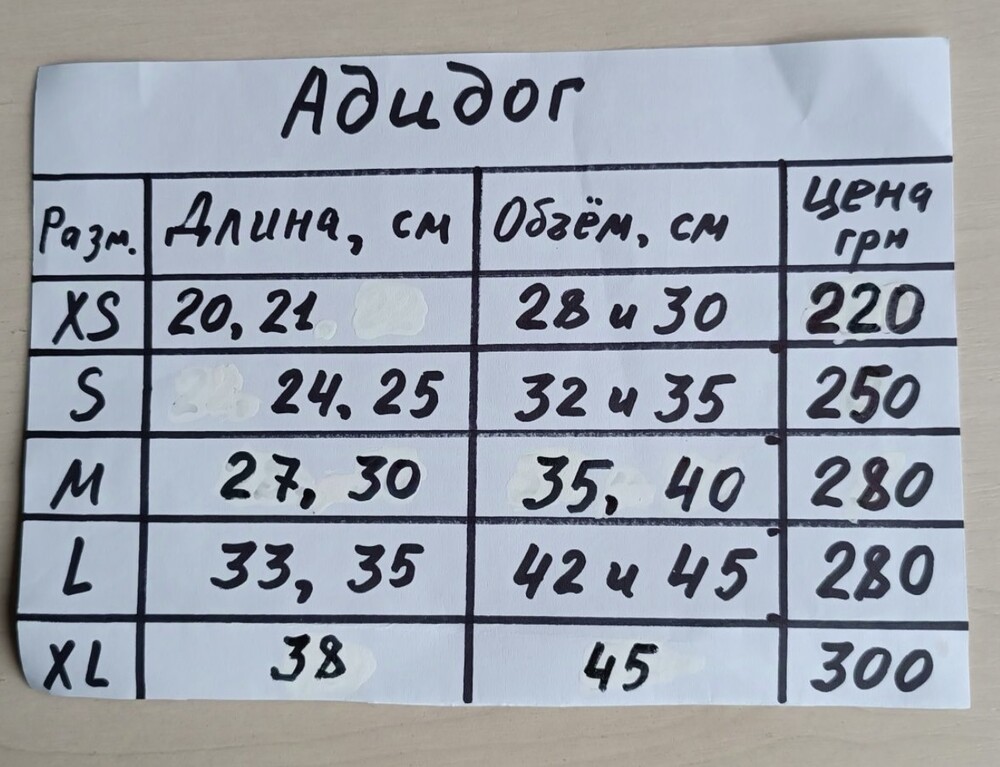 Адидог
Разм. Длина, см Объём, см Цена грн
XS 20, 21 28 и 30 220
S 24, 25 32 и 35 250
M 27, 30 35, 40 280
L 33, 35 42 и 45 280
XL 38 45 300